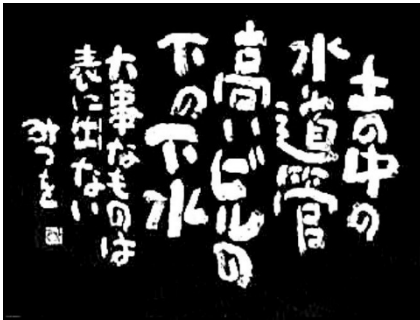 土の中の
水道管
高いビルの
下の下水
大事なものは
表に出ない
みつを